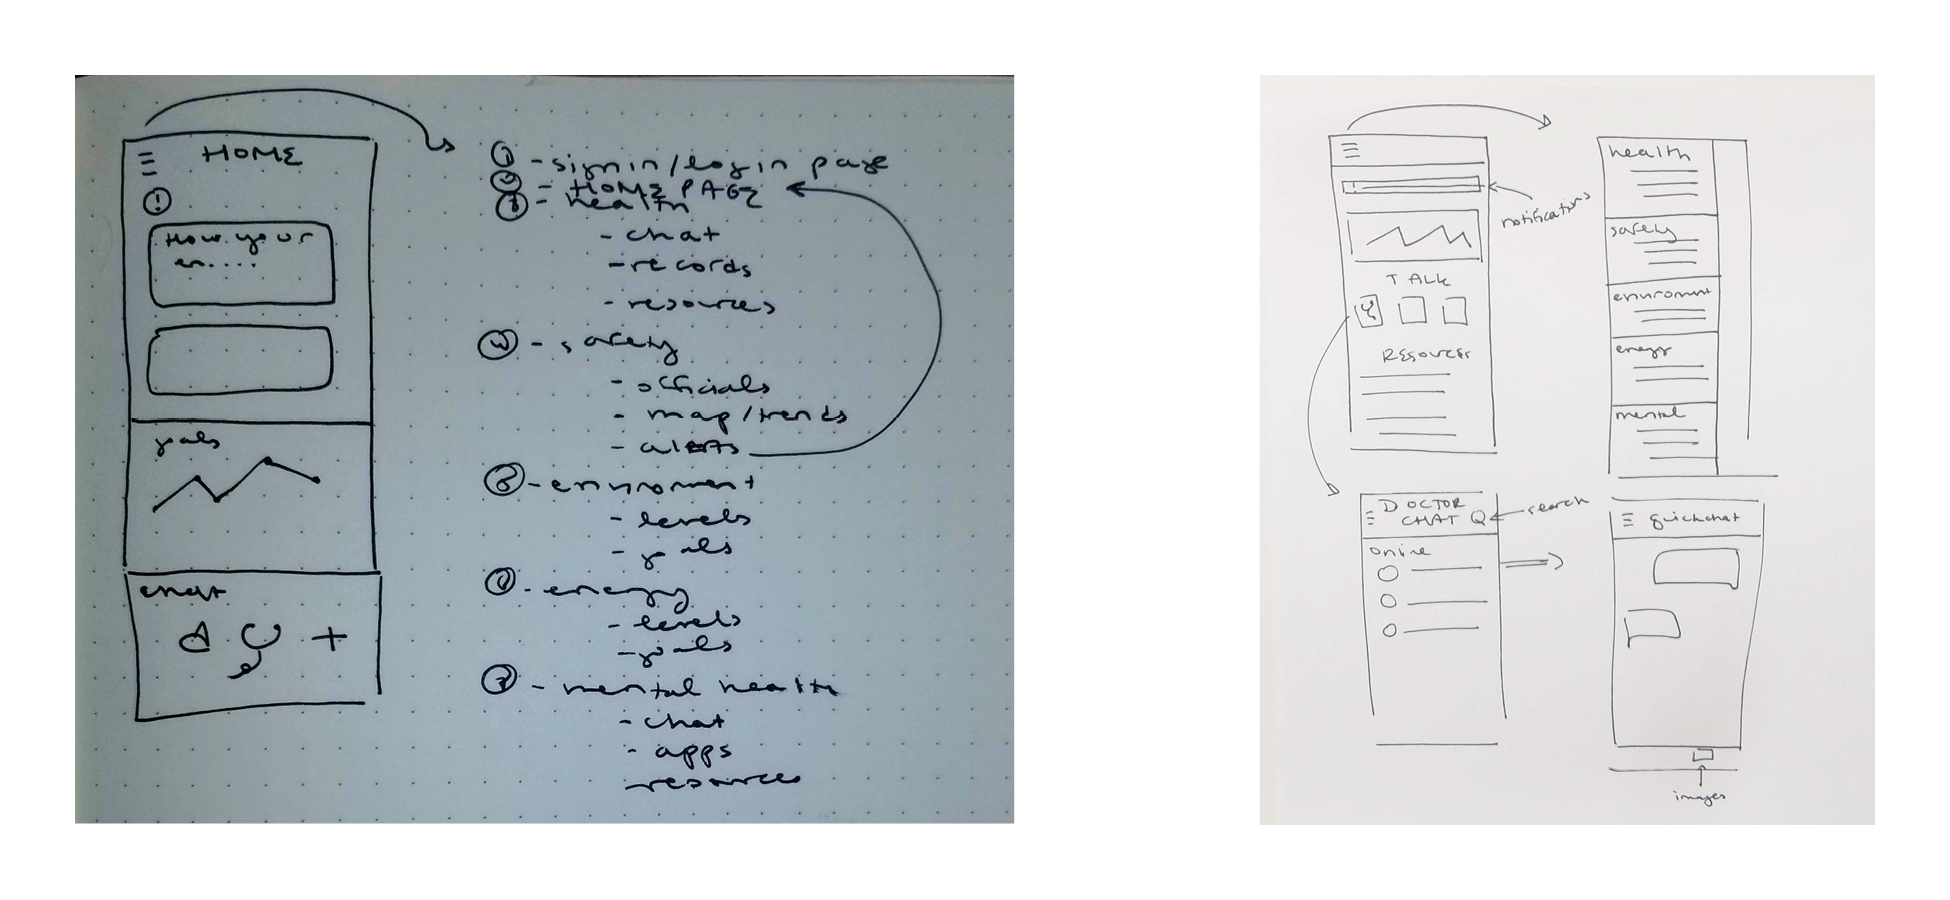 HOME
!
How your
en....
goals
chat
① - signin/login page
② - HOME PAGE
③ - health
- chat
- records
- resources
④ - safety
- officials
- map/trends
- alerts
⑤ - enviroment
- levels
- goals
⑥ - energy
- levels
- goals
⑦ - mental health
- chat
- apps
- resources
notifications
TALK
RESOURCES
health
safety
enviroment
energy
mental
DOCTOR
CHAT
search
online
quickchat
images